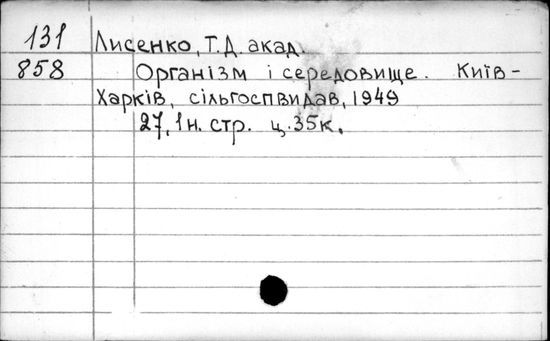 131 Лисенко, Т.Д. акад.
858 Організм і середовище. Київ-
Харків, сільгоспвидав, 1949
27, 1 н. стр. ц. 35к.